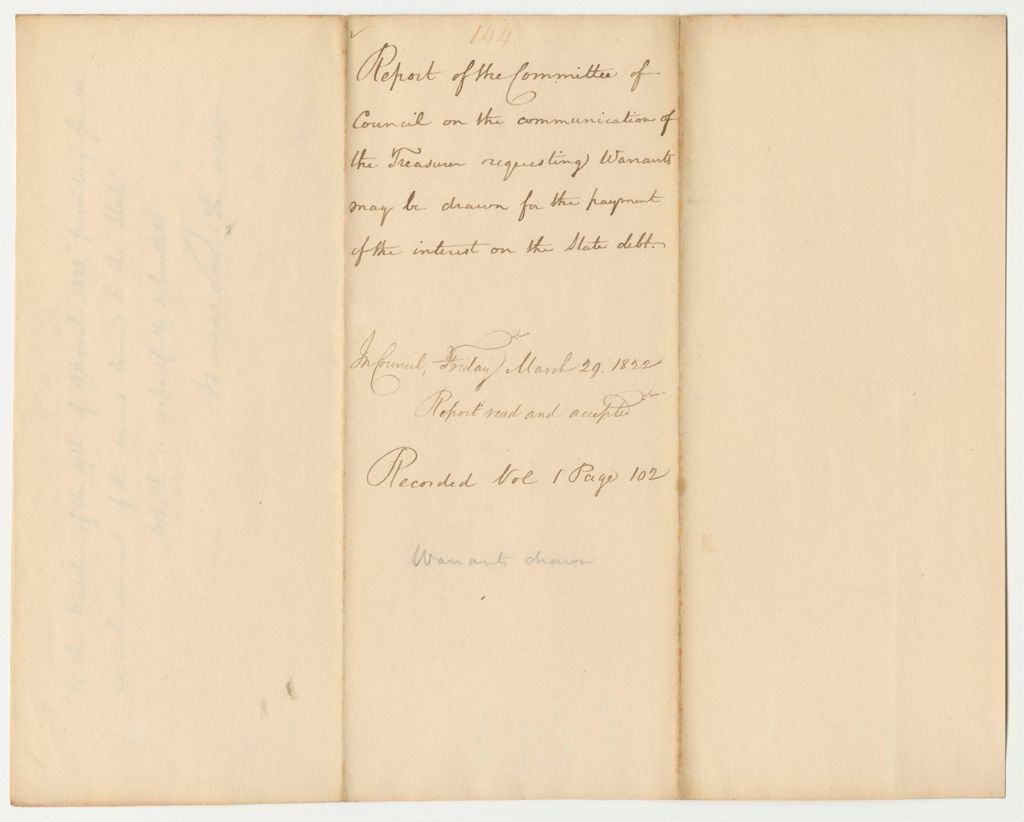 144.
Report of the Committee of
Council on the communication of
the Treasurer requesting Warrants
may be drawn for the payment
of the interest on the State debt.
In Council, Friday, March 29. 1822
Report read and accepted
Recorded Vol 1 Page 102
Warrants drawn